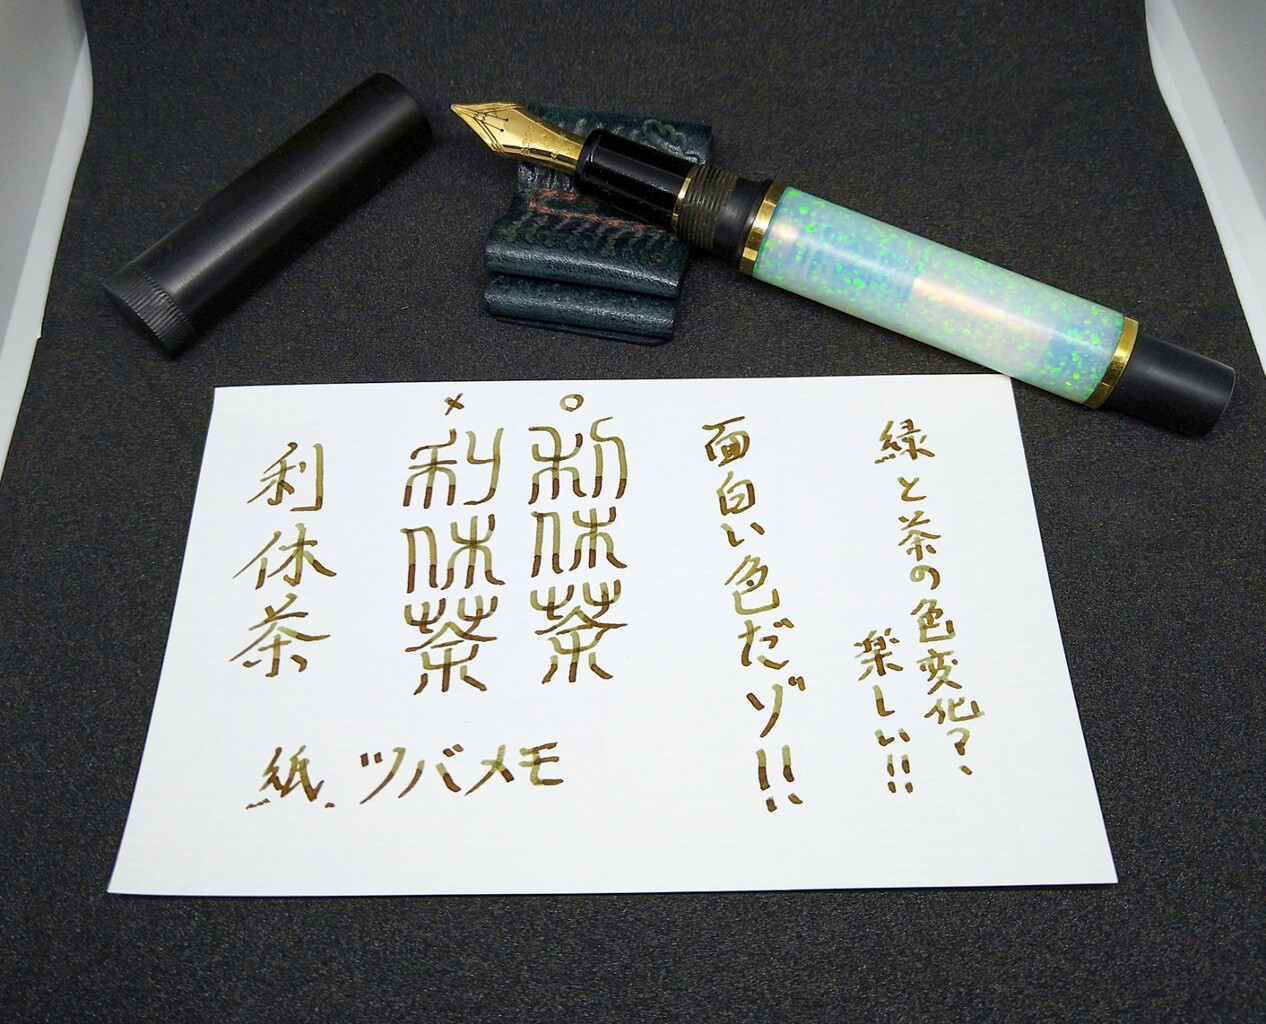 緑と茶の色変化?、
楽しい!!
面白い色だゾ!!
○
利休茶
×
利休茶
利休茶
紙. ツバメモ